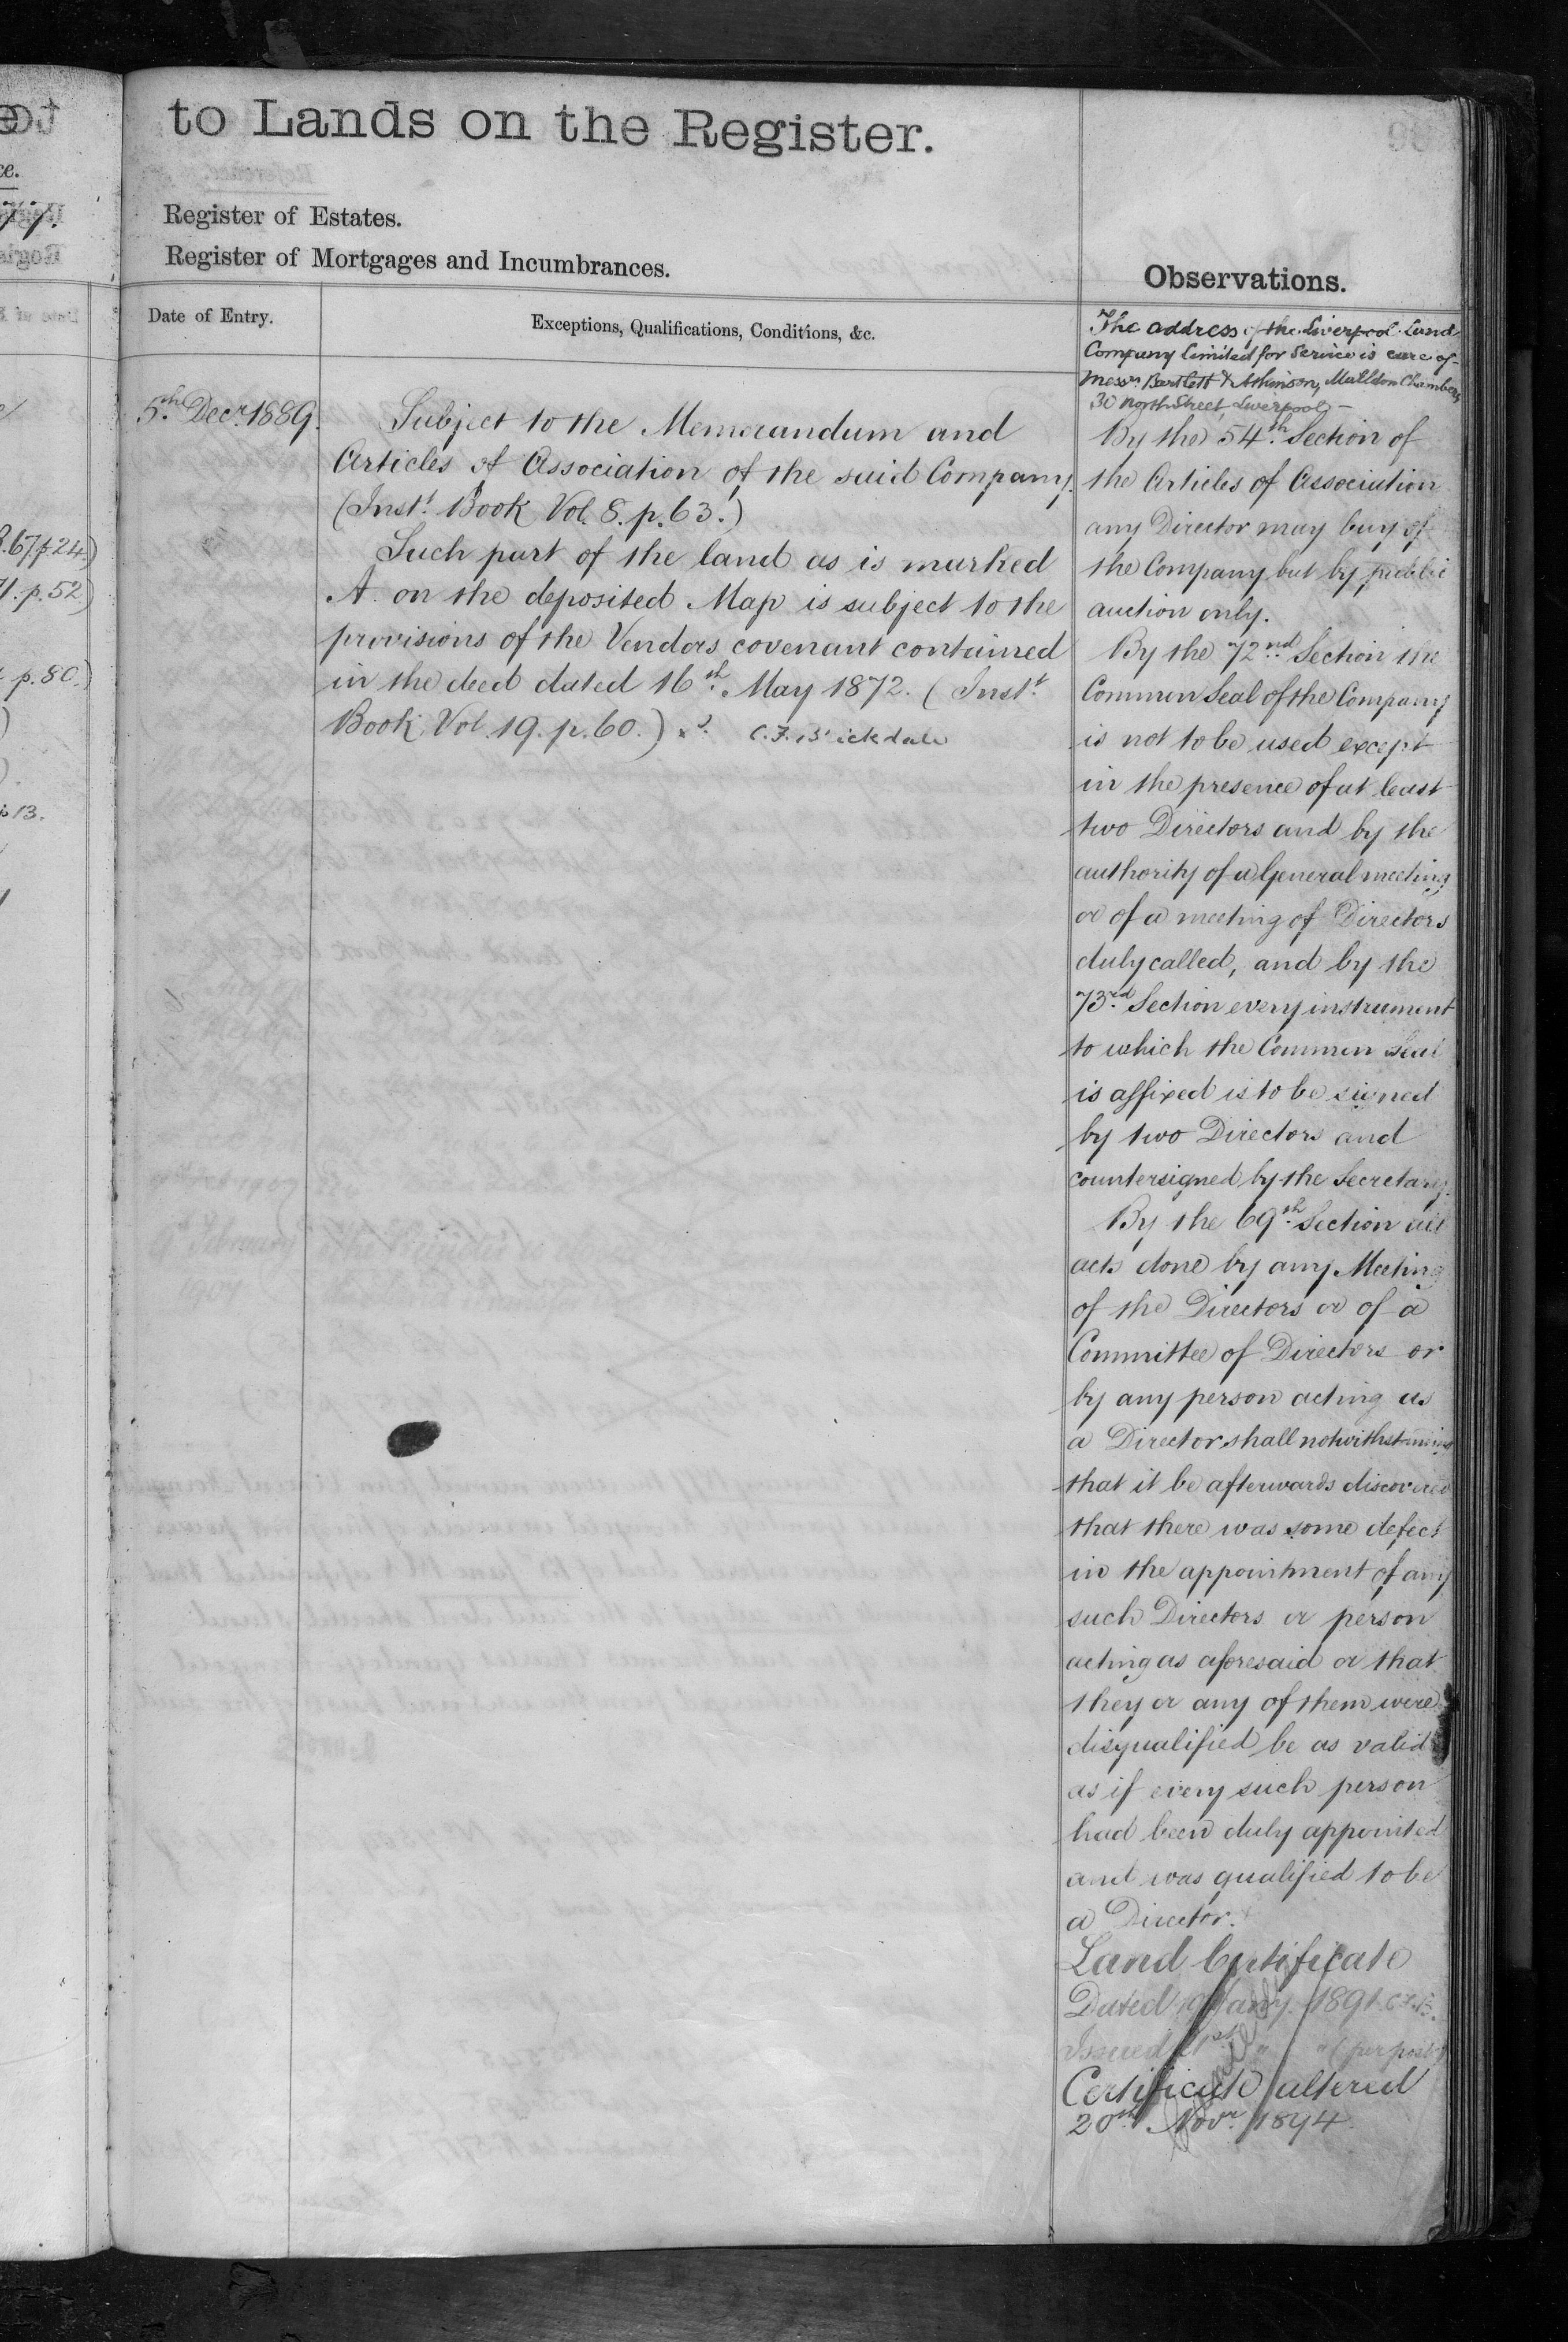 to Lands on the Register.
Register of Estates.
Register of Mortgages and Incumbrances.
Date of Entry.
Exceptions, Qualifications, Conditions, &c.
5th Decr. 1889.
Subject to the Memorandum and
Articles of Association of the said Company.
(Inst.t Book Vol. 8. p. 63.)
Such part of the land as is marked
A. on the deposited Map is subject to the
provisions of the Vendors covenant contained
in the deed dated 16th May 1872. (Inst.t
Book Vol. 19. p. 60.)
Observations.
The address of the Liverpool Land
Company Limited for Service is care of
Messrs. Bartlett & Atkinson, Chambers
30 North Street, Liverpool –
By the 54th Section of
the Articles of Association
any Director may buy of
the Company but by public
auction only.
By the 72nd Section the
Common Seal of the Company
is not to be used except
in the presence of at least
two Directors and by the
authority of a General meeting
or of a meeting of Directors
duly called, and by the
73rd Section every instrument
to which the Common Seal
is affixed is to be signed
by two Directors and
countersigned by the Secretary.
By the 69th Section all
acts done by any Meeting
of the Directors or of a
Committee of Directors or
by any person acting as
a Director shall notwithstanding
that it be afterwards discovered
that there was some defect
in the appointment of any
such Directors or person
acting as aforesaid or that
they or any of them were
disqualified be as valid
as if every such person
had been duly appointed
and was qualified to be
a Director.
Land Certificate
Dated 19 Jany. 1891 C.F.B.
Issued 21st " " (per post)
Certificate altered
20th Novr. 1894.
8.67 p.24)
71. p. 52)
p. 80.)
p 13.